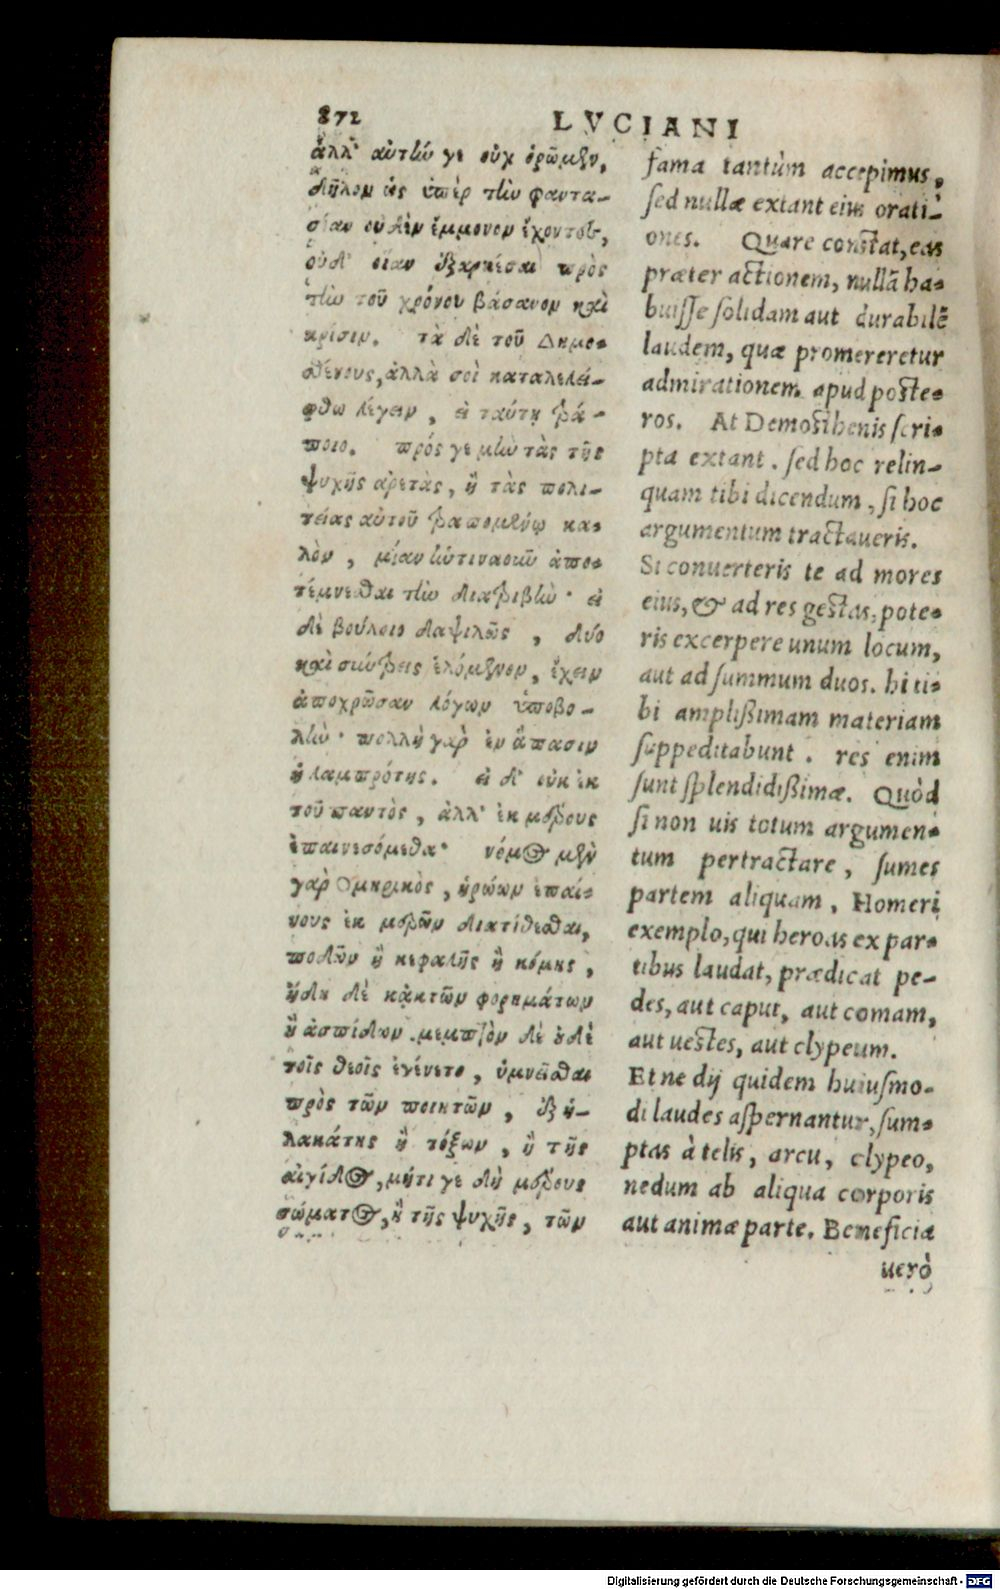 872 LVCIANI
ἀλλ' αὐτὴν γε οὐχ ὁρῶμεν,
δῆλον ὡς ὑπὲρ τὴν φαντα-
σίαν οὐδὲν ἔμμονον ἔχοντος,
οὐδ' οἷαν ἐξαρκέσαι πρὸς
τὴν τοῦ χρόνου βάσανον καὶ
κρίσιν. τὰ δὲ τοῦ Δημο-
σθένους, ἀλλὰ σοὶ καταλελεί-
φθω λέγειν, εἰ ταύτῃ τρά-
ποιο. πρός γε μὴν τὰς τῆς
ψυχῆς ἀρετὰς, ἢ τὰς πολι-
τείας αὐτοῦ τραπομένῳ κα-
λὸν, μίαν ἡντιναοῦν ἀπο-
τέμνεσθαι τὴν διατριβὴν· εἰ
δὲ βούλοιο δαψιλῶς, δύο
καὶ σύντρεις ἑλόμενον, ἔχειν
ἀποχρῶσαν λόγων ὑποβο-
λὴν· πολλὴ γὰρ ἐν ἅπασιν
ἡ λαμπρότης. εἰ δ' οὐκ ἐκ
τοῦ παντὸς, ἀλλ' ἐκ μέρους
ἐπαινεσόμεθα· νόμος μὲν
γὰρ Ὁμηρικὸς, ἡρώων ἐπαί-
νους ἐκ μερῶν διατίθεσθαι,
ποδῶν ἢ κεφαλῆς ἢ κόμης,
ἤδη δὲ κἀκ τῶν φορημάτων
ἢ ἀσπίδων. μεμπτὸν δὲ οὐδὲ
τοῖς θεοῖς ἐγένετο, ὑμνεῖσθαι
πρὸς τῶν ποιητῶν, ἐξ ἠ-
λακάτης ἢ τόξων, ἢ τῆς
αἰγίδος, μήτι γε δὴ μέρους
σώματος, ἢ τῆς ψυχῆς, τῶν
fama tantùm accepimus,
sed nullæ extant eius orati-
ones. Quare constat, eas
præter actionem, nullã ha-
buisse solidam aut durabilẽ
laudem, quæ promereretur
admirationem apud poste-
ros. At Demosthenis scri-
pta extant. sed hoc relin-
quam tibi dicendum, si hoc
argumentum tractaueris.
Si conuerteris te ad mores
eius, & ad res gestas, pote-
ris excerpere unum locum,
aut ad summum duos. hi ti-
bi amplißimam materiam
suppeditabunt. res enim
sunt splendidißimæ. Quòd
si non uis totum argumen-
tum pertractare, sumes
partem aliquam, Homeri
exemplo, qui heroas ex par-
tibus laudat, prædicat pe-
des, aut caput, aut comam,
aut uestes, aut clypeum.
Et ne dij quidem huiusmo-
di laudes aspernantur, sum-
ptas à telis, arcu, clypeo,
nedum ab aliqua corporis
aut animæ parte. Beneficia
uerò
Digitalisierung gefördert durch die Deutsche Forschungsgemeinschaft - DFG